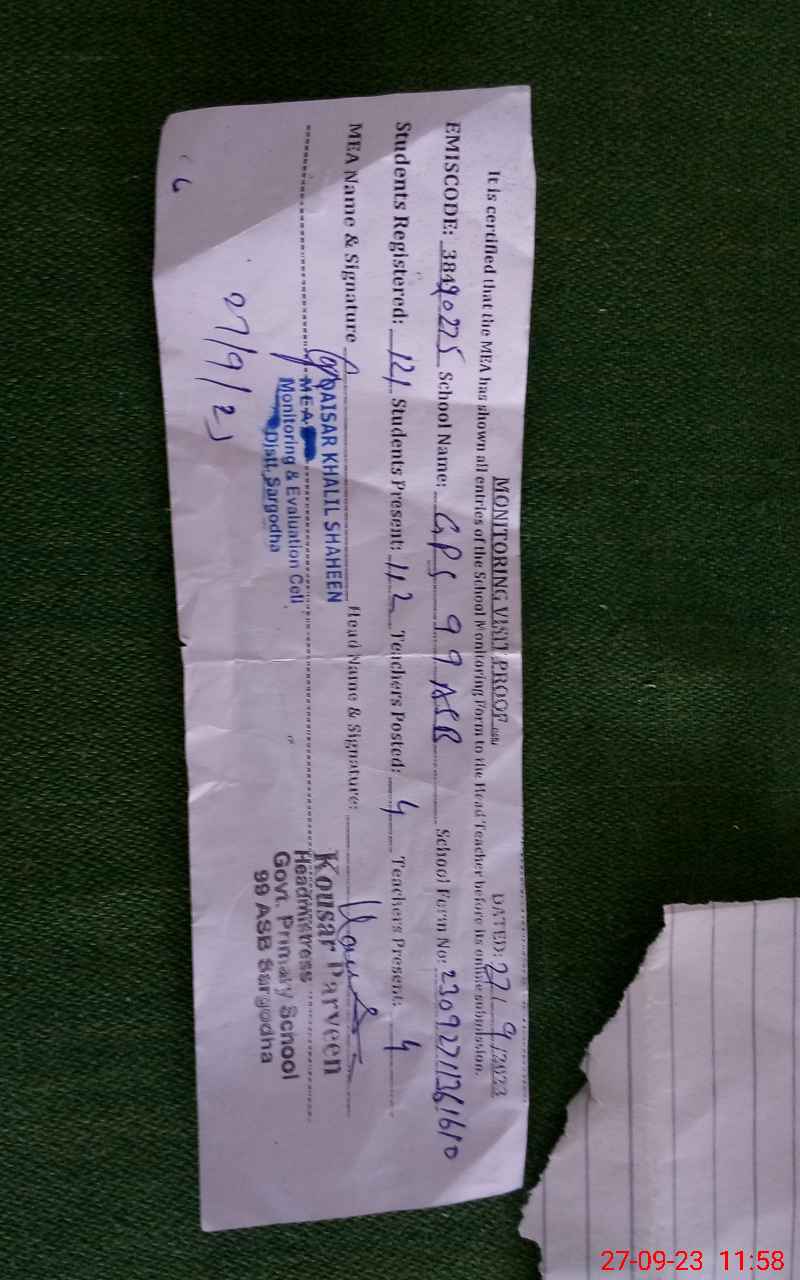 MONITORING VISIT PROOF
DATED: 27/9/2023
It is certified that the MEA has shown all entries of the School Monitoring Form to the Head Teacher before its online submission.
EMISCODE: 38490275 School Name: GPS 99 ASB School Form No:
Students Registered: 121 Students Present: 112 Teachers Posted: 4 Teachers Present: 4
MEA Name & Signature Head Name & Signature:
QAISAR KHALIL SHAHEEN
MEA
Monitoring & Evaluation Cell
Distt, Sargodha
Kousar Parveen
Headmistress
Govt. Primary School
99 ASB Sargodha
27/9/23
27-09-23 11:58